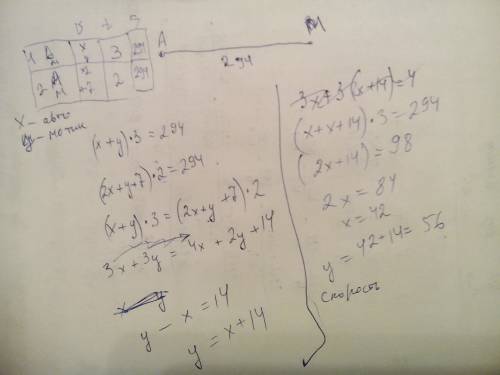 v t S
1 A x 3 294
M y
2 A 2x 2 294
M y+7
x - авто
y - мотик
A M
294
(x+y)·3=294
(2x+y+7)·2=294
(x+y)·3=(2x+y+7)·2
3x+3y=4x+2y+14
y-x=14
y=x+14
3x+3(x+14)=4
(x+x+14)·3=294
(2x+14)=98
2x=84
x=42
y=42+14=56